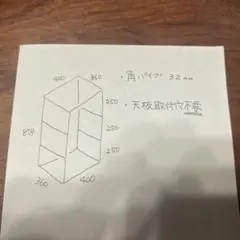 400 360
・角パイプ 32mm
250
・天板取付穴不要
878
250
250
360 400